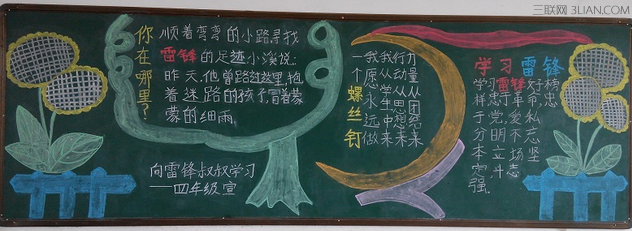 你在哪里?
顺着弯弯的小路寻找
雷锋的足迹小溪说:
昨天,他曾路过这里,抱
着迷路的孩子,冒着蒙
蒙的细雨。
向雷锋叔叔学习
——四年级宣
力量从团结来
行动从思想来
我从学生中来
我愿永远做
一个螺丝钉
学习雷锋
学习雷锋好榜
样忠于革命忠
于党爱
分明不忘
本立场坚
定斗志
强
三联网 3LIAN.COM